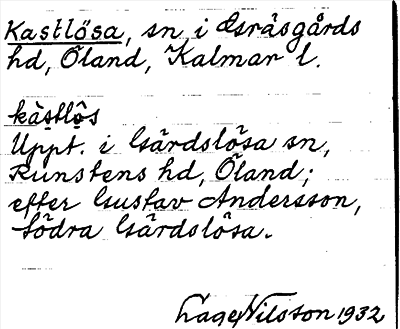 Kastlösa, sn i Gräsgårds
hd, Öland, Kalmar l.
kàstlö̀s
Uppt. i Gärdslösa sn,
Runstens hd, Öland;
efter Gustav Andersson,
Södra Gärdslösa.
Lage Nilsson 1932